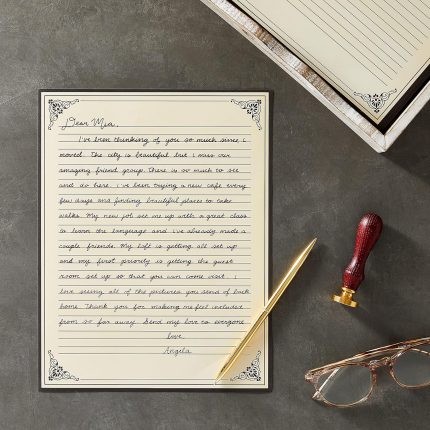 Dear Mia,
I've been thinking of you so much since i
moved. The city is beautiful but i miss our
amazing friend group. There is so much to see
and do here. i've been trying a new cafe every
few days and finding beautiful places to take
walks. My new job set me up with a great class
to learn the language and i've already made a
couple friends. My loft is getting all set up
and my first priority is getting the guest
room set up so that you can come visit. I
love seeing all of the pictures you send of back
home. Thank you for making me feel included
from so far away. Send my love to everyone.
Love,
Angela